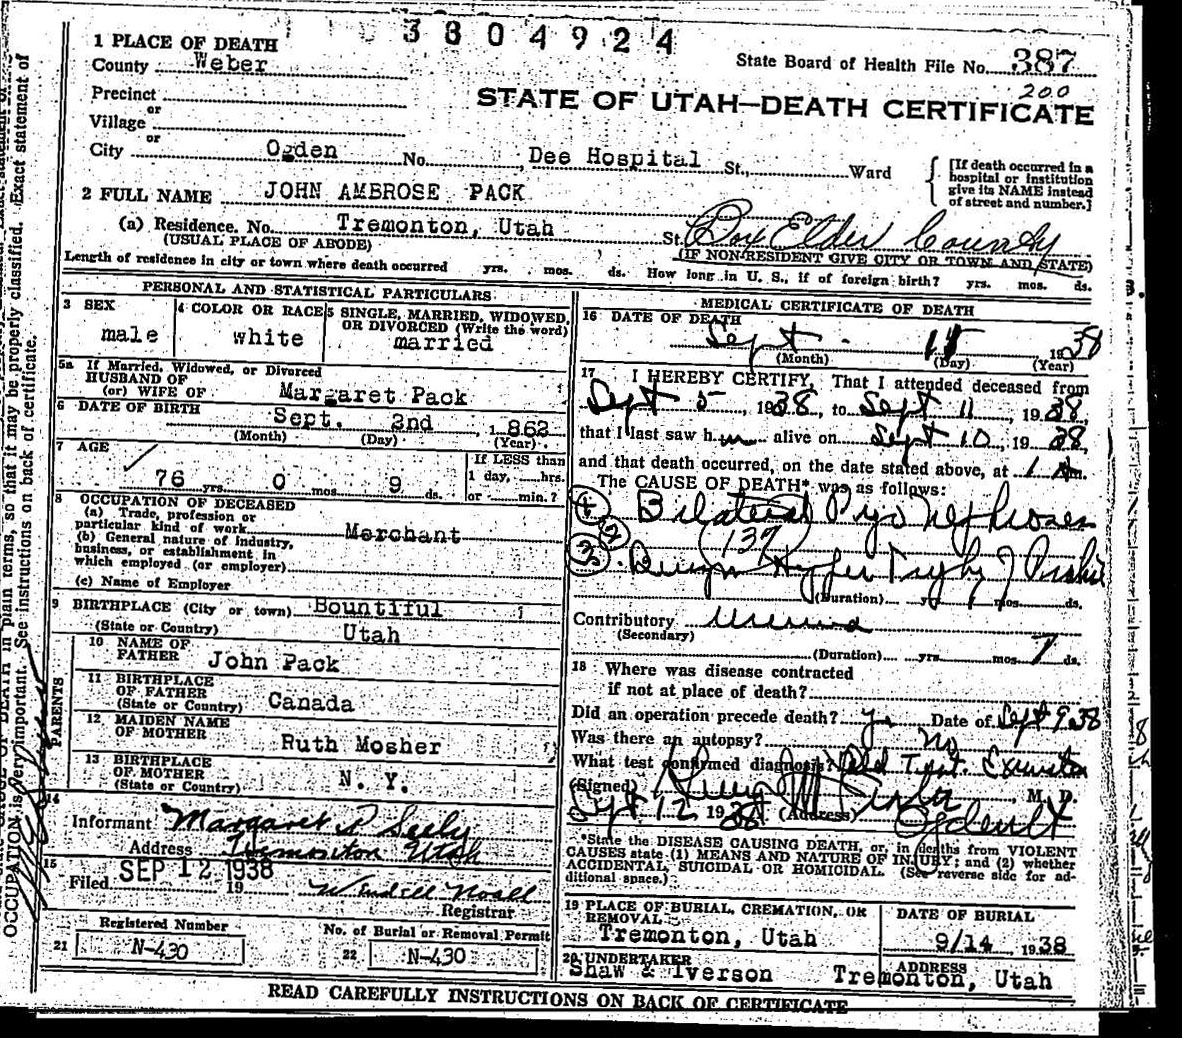 3804924
1 PLACE OF DEATH
County Weber
State Board of Health File No. 387
200
Precinct
or
STATE OF UTAH—DEATH CERTIFICATE
Village
or
City Ogden No. Dee Hospital St., Ward
[If death occurred in a
hospital or institution
give its NAME instead
of street and number.]
2 FULL NAME JOHN AMBROSE PACK
(a) Residence. No. Tremonton, Utah St. Box Elder County
(USUAL PLACE OF ABODE) (IF NON-RESIDENT GIVE CITY OR TOWN AND STATE)
Length of residence in city or town where death occurred yrs. mos. ds. How long in U. S., if of foreign birth? yrs. mos. ds.
PERSONAL AND STATISTICAL PARTICULARS
3 SEX
male
4 COLOR OR RACE
white
5 SINGLE, MARRIED, WIDOWED,
OR DIVORCED (Write the word)
married
5a If Married, Widowed, or Divorced
HUSBAND OF
(or) WIFE OF Margaret Pack
6 DATE OF BIRTH Sept. 2nd, 1862
(Month) (Day) (Year)
7 AGE
76 yrs. 0 mos. 9 ds.
If LESS than
1 day, hrs.
or min.?
8 OCCUPATION OF DECEASED
(a) Trade, profession or
particular kind of work Merchant
(b) General nature of industry,
business, or establishment in
which employed (or employer)
(c) Name of Employer
9 BIRTHPLACE (City or town) Bountiful
(State or Country) Utah
PARENTS
10 NAME OF
FATHER John Pack
11 BIRTHPLACE
OF FATHER
(State or Country) Canada
12 MAIDEN NAME
OF MOTHER Ruth Mosher
13 BIRTHPLACE
OF MOTHER
(State or Country) N. Y.
14
Informant Margaret P Seely
Address Tremonton Utah
15
Filed SEP 12 1938 19
Registrar
Registered Number
21 N-430
No. of Burial or Removal Permit
22 N-430
MEDICAL CERTIFICATE OF DEATH
16 DATE OF DEATH
Sept. 11 1938
(Month) (Day) (Year)
17 I HEREBY CERTIFY, That I attended deceased from
Sept 5, 1938, to Sept 11, 1938
that I last saw him alive on Sept 10, 1938
and that death occurred, on the date stated above, at 1 Am.
The CAUSE OF DEATH* was as follows:
1 Bilateral Pyo Nephroses
2 137
3
(Duration) yrs. mos. ds.
Contributory Uremia
(Secondary)
(Duration) yrs. mos. 7 ds.
18 Where was disease contracted
if not at place of death?
Did an operation precede death? yes Date of Sept 9 38
Was there an autopsy? No
What test confirmed diagnosis?
(Signed) M. D.
Sept 12 1938 (Address) Ogden Ut
*State the DISEASE CAUSING DEATH, or, in deaths from VIOLENT
CAUSES state (1) MEANS AND NATURE OF INJURY; and (2) whether
ACCIDENTAL, SUICIDAL OR HOMICIDAL. (See reverse side for ad-
ditional space.)
19 PLACE OF BURIAL, CREMATION, OR
REMOVAL
Tremonton, Utah
DATE OF BURIAL
9/14 1938
20 UNDERTAKER
Shaw & Iverson
ADDRESS
Tremonton, Utah
READ CAREFULLY INSTRUCTIONS ON BACK OF CERTIFICATE
in plain terms, so that it may be properly classified. Exact statement of
OCCUPATION is very important. See instructions on back of certificate.